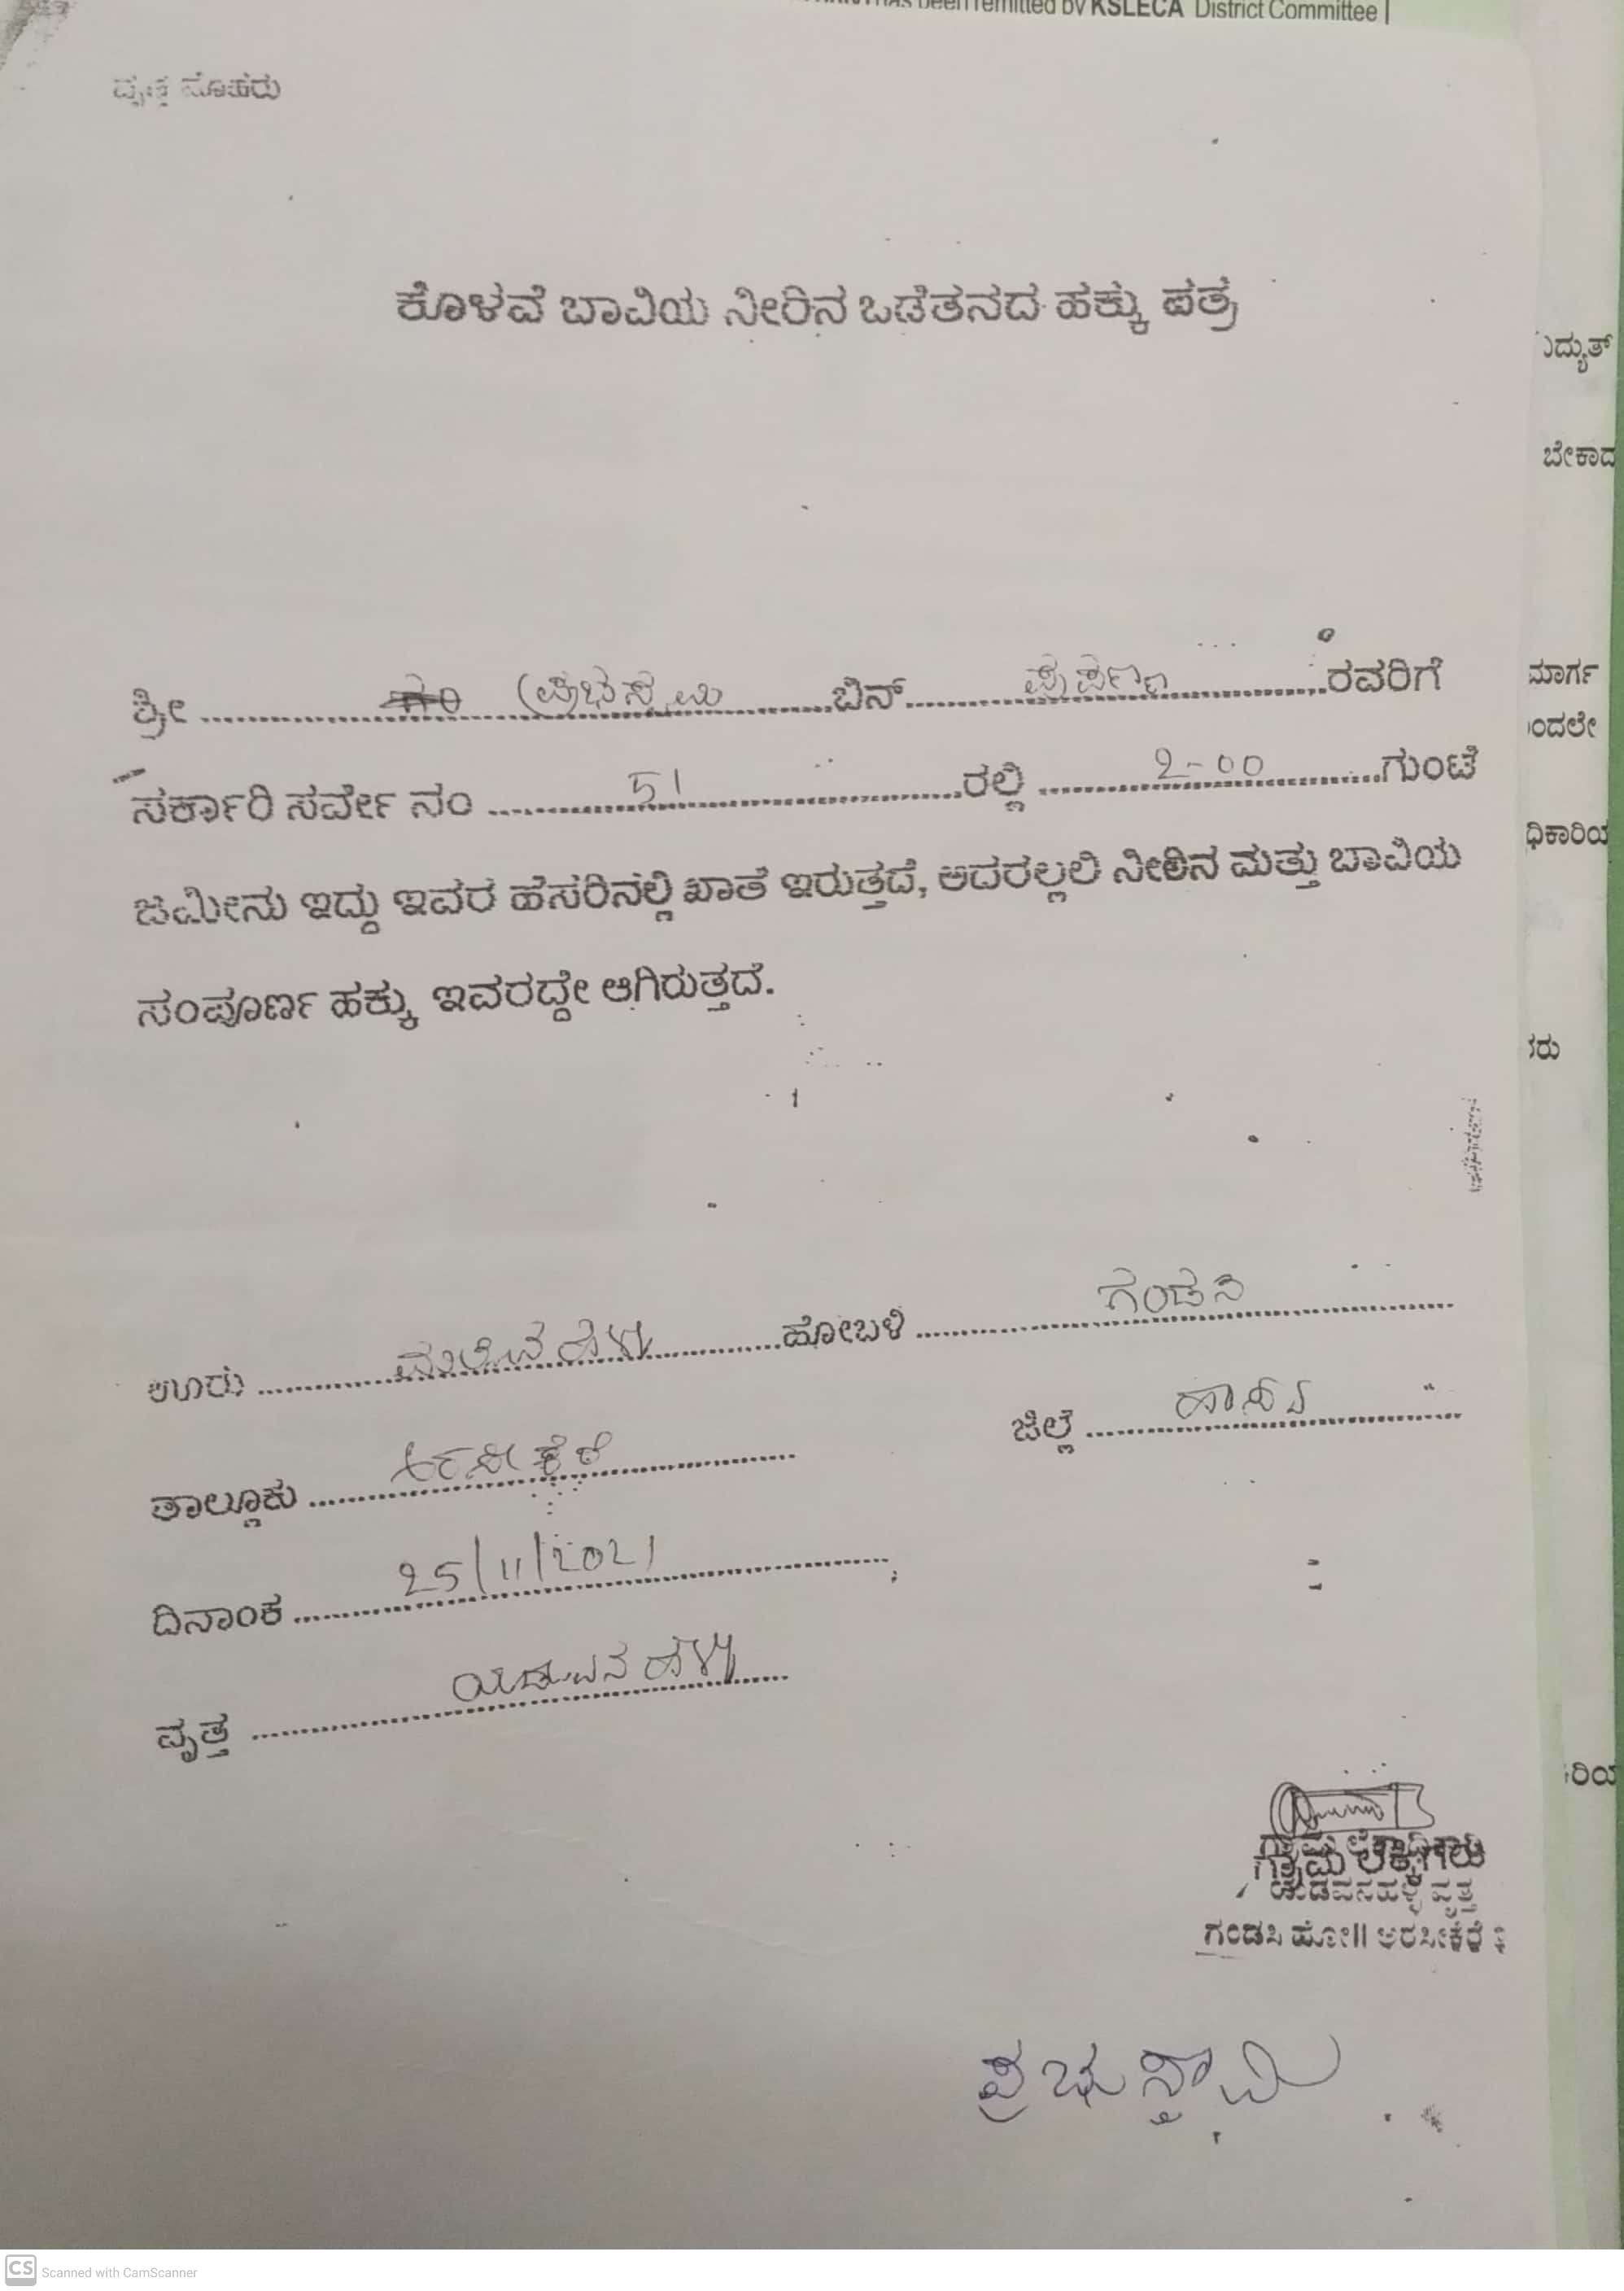 has been remitted by KSLECA District Committee
ವೃತ್ತ ಮೊಹರು
ಕೊಳವೆ ಬಾವಿಯ ನೀರಿನ ಒಡೆತನದ ಹಕ್ಕು ಪತ್ರ
ಶ್ರೀ ........ ಪ್ರಭುಸ್ವಾಮಿ ........ ಬಿನ್ ................ ರವರಿಗೆ
ಸರ್ಕಾರಿ ಸರ್ವೇ ನಂ ........ 51 ........ ರಲ್ಲಿ ........ 2-00 ........ ಗುಂಟೆ
ಜಮೀನು ಇದ್ದು ಇವರ ಹೆಸರಿನಲ್ಲಿ ಖಾತೆ ಇರುತ್ತದೆ, ಅದರಲ್ಲಲಿ ನೀರಿನ ಮತ್ತು ಬಾವಿಯ
ಸಂಪೂರ್ಣ ಹಕ್ಕು ಇವರದ್ದೇ ಆಗಿರುತ್ತದೆ.
ಊರು ................ ಹೋಬಳಿ ........ ಗಂಡಸಿ
ತಾಲ್ಲೂಕು ........ ಅರಸೀಕೆರೆ ........ ಜಿಲ್ಲೆ ........ ಹಾಸನ
ದಿನಾಂಕ ........ 25/11/2021
ವೃತ್ತ ........ ಯಡುವನಹಳ್ಳಿ
ಗ್ರಾಮ ಲೆಕ್ಕಿಗರು
ಯಡವನಹಳ್ಳಿ ವೃತ್ತ
ಗಂಡಸಿ ಹೋ|| ಅರಸೀಕೆರೆ
ಪ್ರಭುಸ್ವಾಮಿ
ಬೇಕಾದ
ಮಾರ್ಗ
CS Scanned with CamScanner